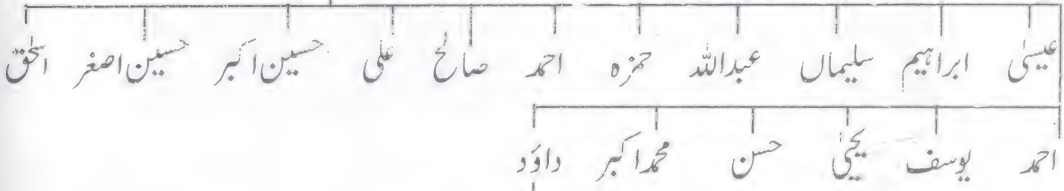 عیسیٰ ابراہیم سلیماں عبداللہ حمزہ احمد صالح علی حسین اکبر حسین اصغر اسحٰق
احمد یوسف یحییٰ حسن محمد اکبر داؤد